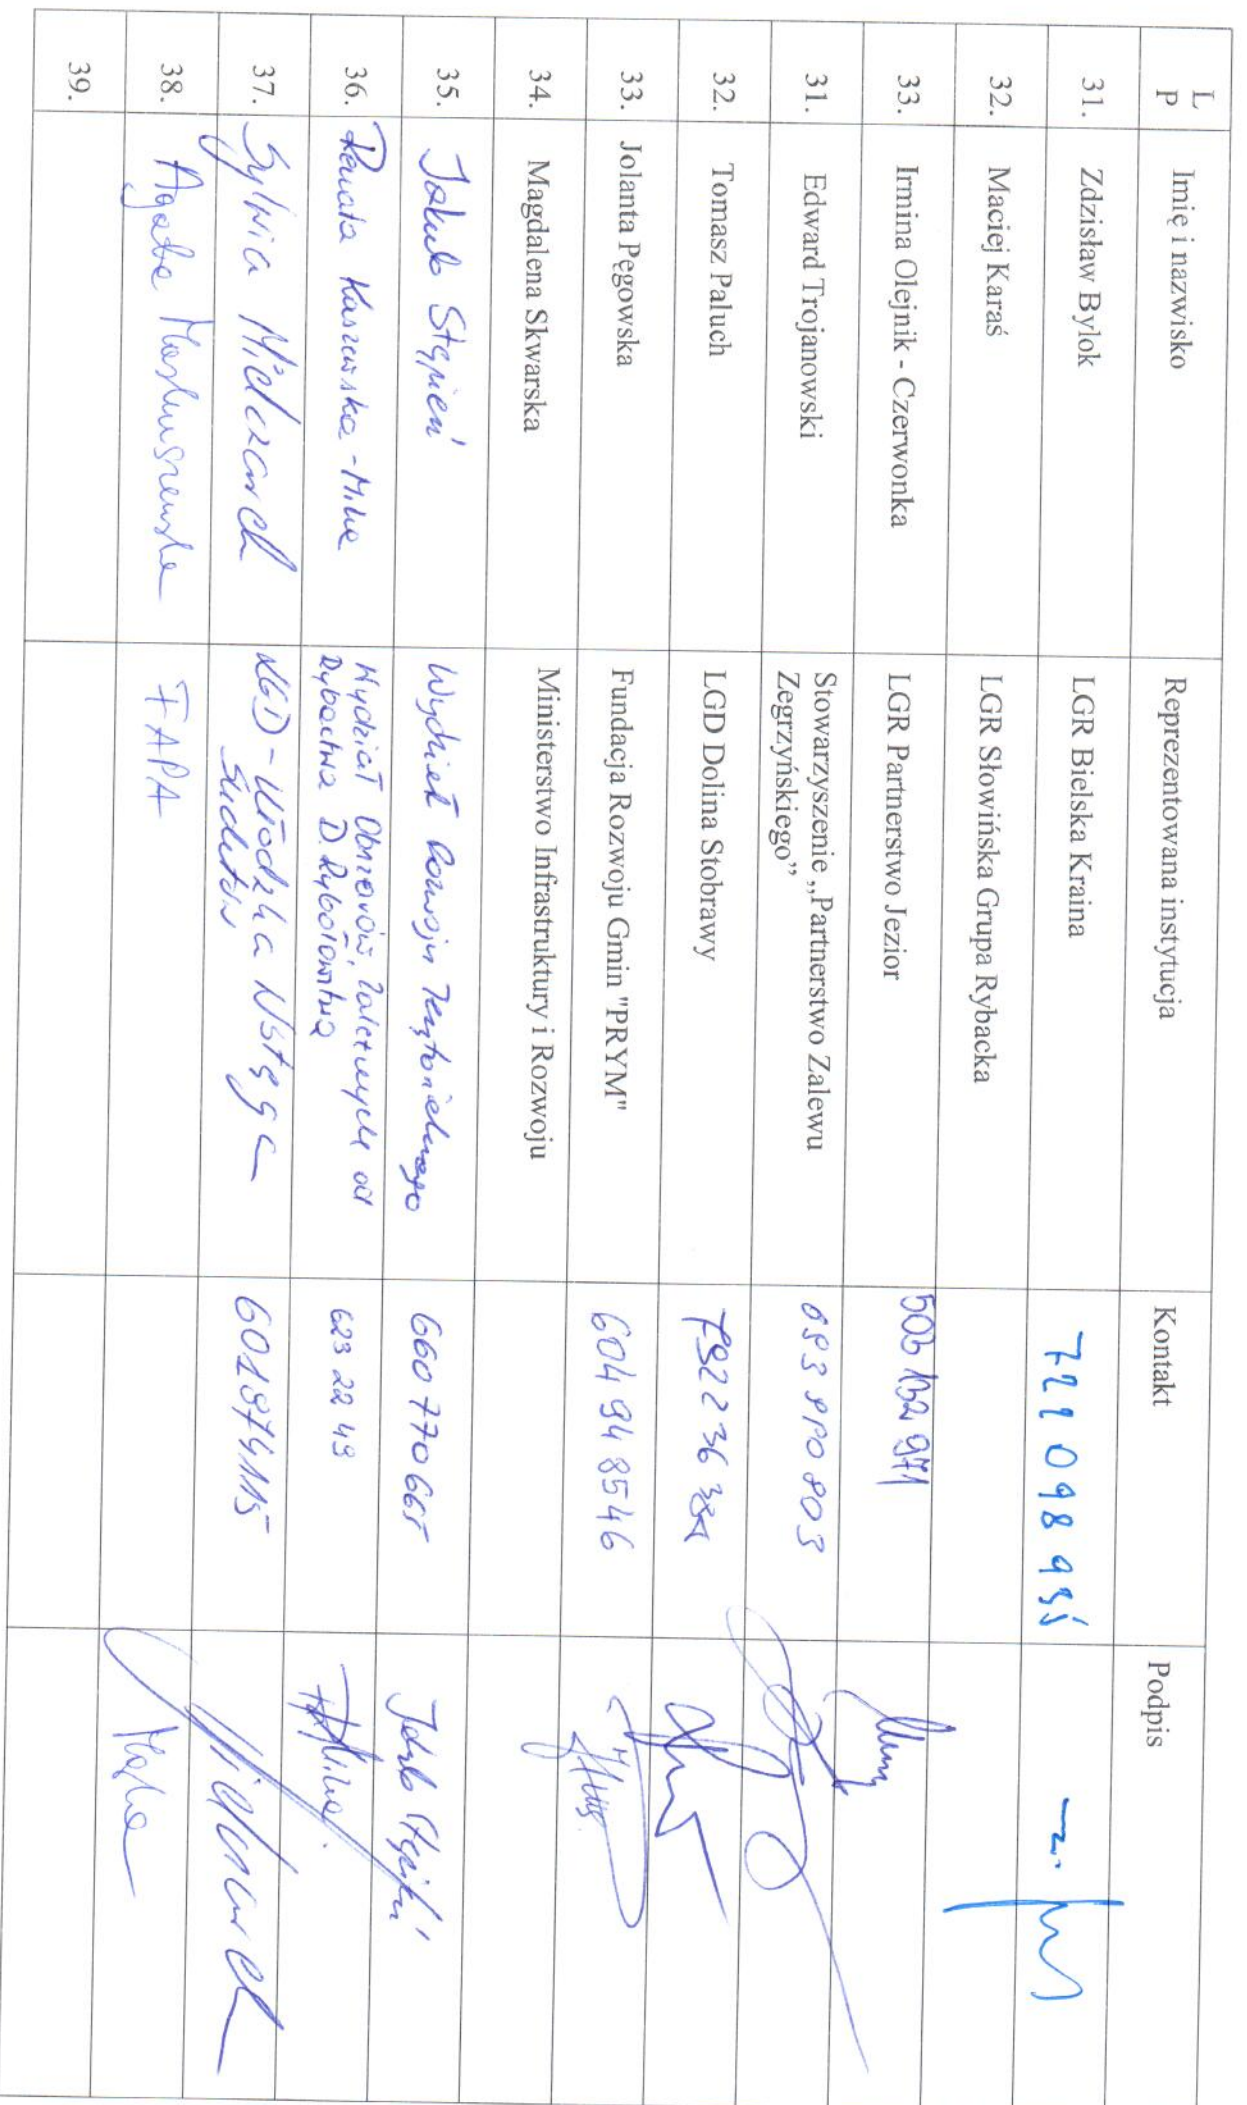 L P Imię i nazwisko Reprezentowana instytucja Kontakt Podpis
31. Zdzisław Bylok LGR Bielska Kraina
32. Maciej Karaś LGR Słowińska Grupa Rybacka
33. Irmina Olejnik - Czerwonka LGR Partnerstwo Jezior
31. Edward Trojanowski Stowarzyszenie „Partnerstwo Zalewu
Zegrzyńskiego”
32. Tomasz Paluch LGD Dolina Stobrawy
33. Jolanta Pęgowska Fundacja Rozwoju Gmin "PRYM" 604 948546
34. Magdalena Skwarska Ministerstwo Infrastruktury i Rozwoju
35. Jakub Stępień Wydział Rozwoju 660770665 Jakub Stępień
36. Renata Wydział Obszarów Zależnych od 623 22 49
Rybactwa D. Rybołówstwa
37. Sylwia Mielczarek LGD - Wstęga 601874115 Mielczarek
Sudetów
38. Agata FAPA
39.